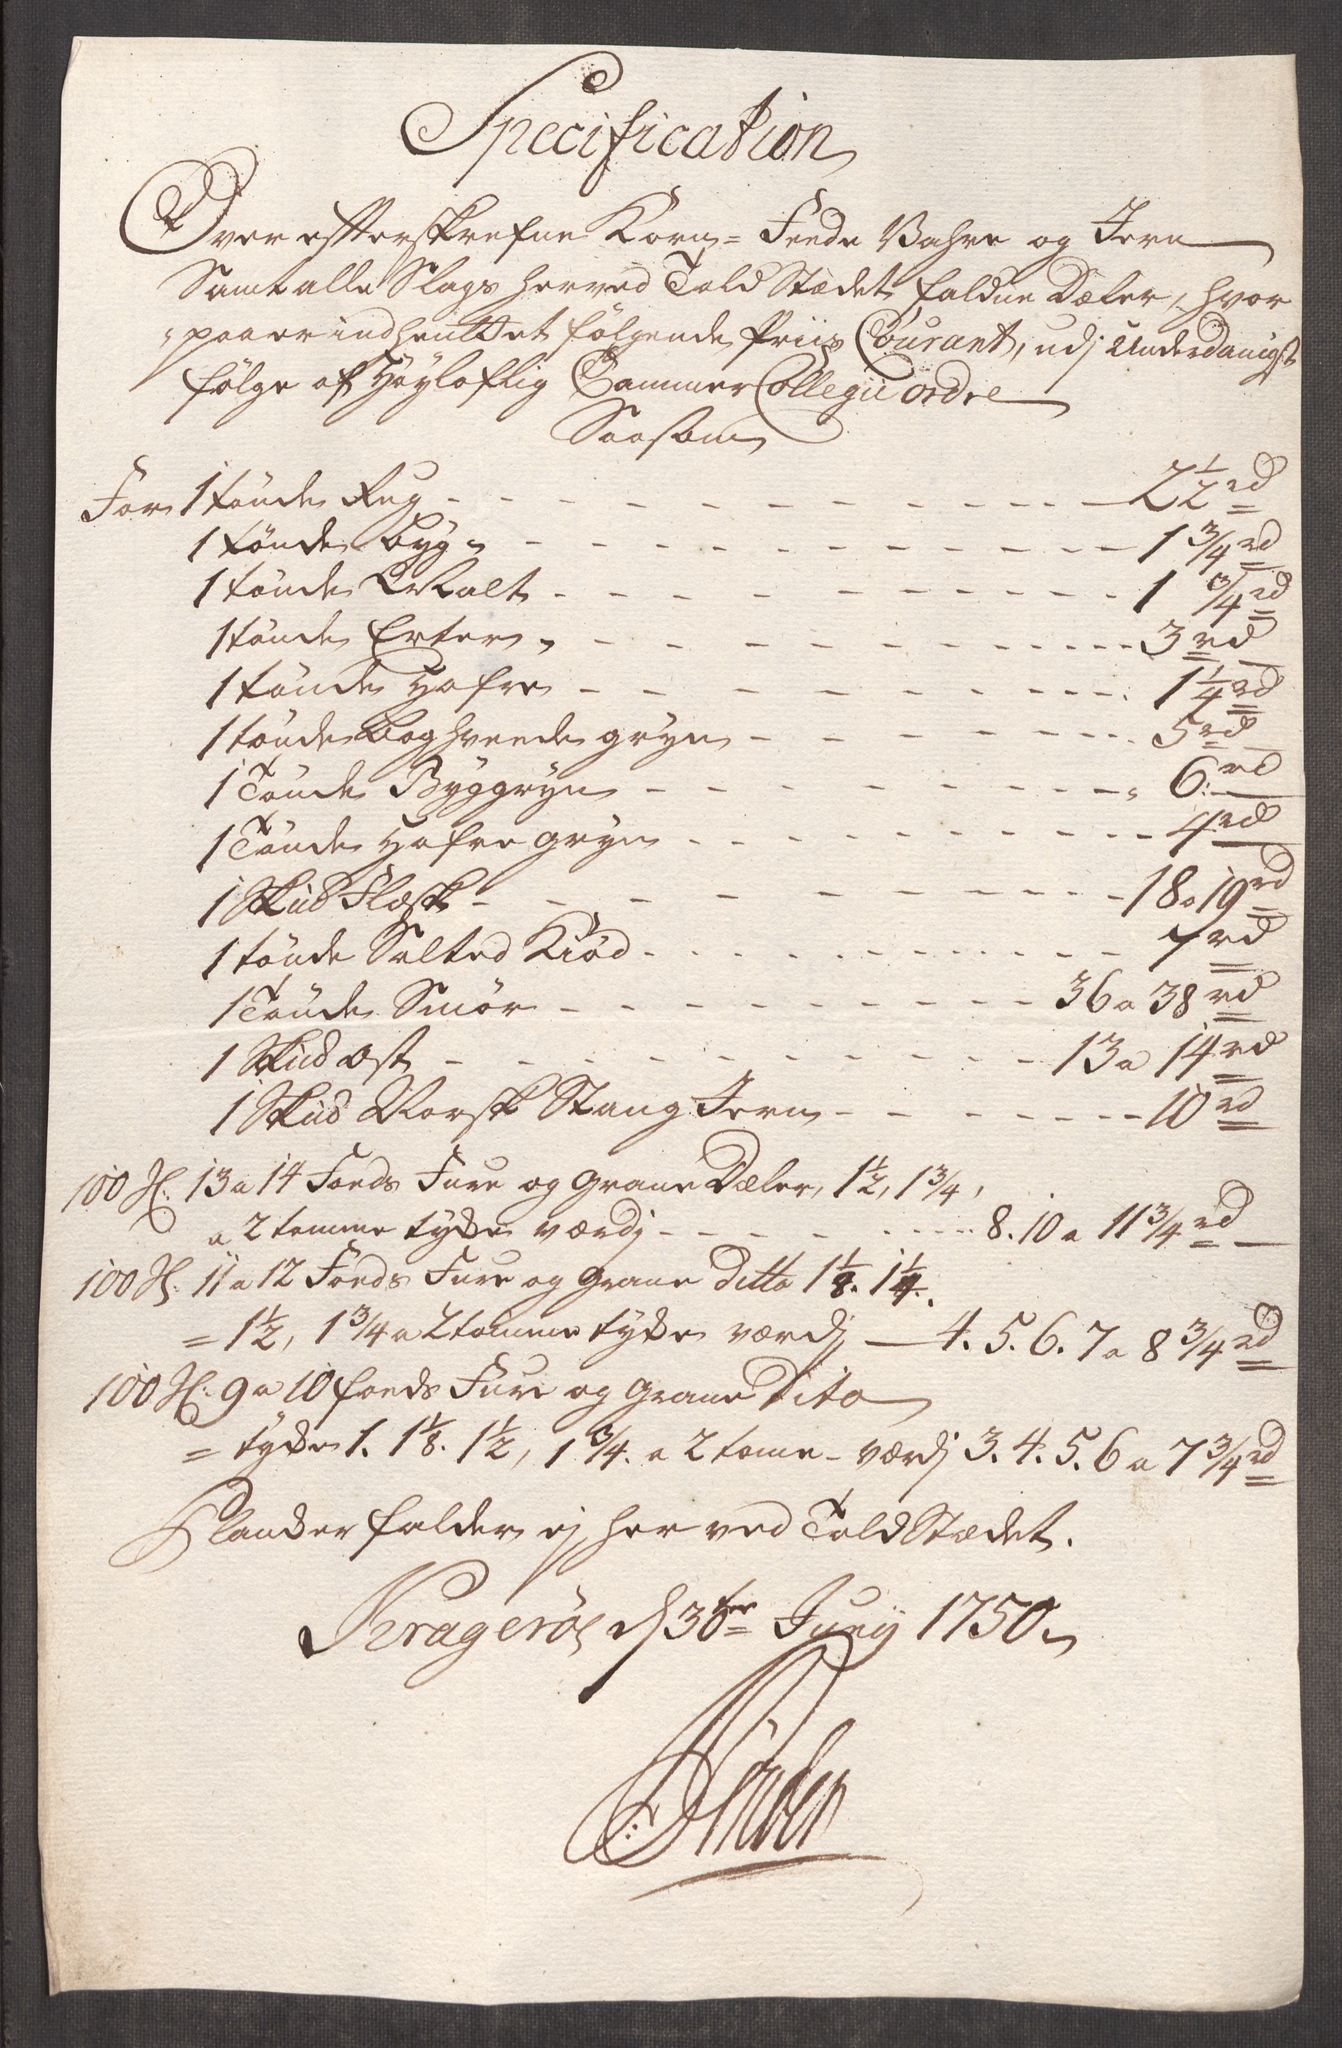 Specification
Over efterskrefne Korn= Feede Vahre og Jern
Samt alle Slags her ved Told Stædet faldne Dæler, hvor
paa er indhentet følgende Priis Courant, udj Underdanigst
følge af Høyloflig Cammer Collegii ordre
Saasom
For 1 tønde Rug - - - 2 1/2 rd
1 tønde byg - - - 1 3/4 rd
1 tønde Malt - - - 1 3/4 rd
1 tønde Erter - - - 3 rd
1 tønde Hafre - - - 1 1/4 rd
1 tønde boghveede gryn - - - 5 rd
1 Tønde Byggryn - - - 6 rd
1 Tønde Hafre gryn - - - 4 rd
1 Skud Flæsk - - - 18 a 19 rd
1 tønde Salted Kiød - - - 7 rd
1 Tønde Smør - - - 36 a 38 rd
1 Skud Ost - - - 13 a 14 rd
1 Skud Norsk Stang Jern - - - 10 rd
100 St: 13 a 14 Foeds Fure og Grane Dæler, 1 1/2, 1 3/4,
a 2 tomme tykke værdj - - - 8. 10 a 11 3/4 rd
100 St: 11 a 12 Foeds Fure og Grane ditto 1 1/8. 1 1/4.
= 1 1/2, 1 3/4 a 2 tomme tykke værdj 4. 5. 6. 7 a 8 3/4 rd
100 St: 9 a 10 foeds Fure og Grane Dito
= tykke 1. 1 1/8. 1 1/2, 1 3/4. a 2 tome - værdj 3. 4. 5. 6 a 7 3/4 rd
Plancker falder ej her ved Told Stædet.
Kragerøe d 30te Junij 1750